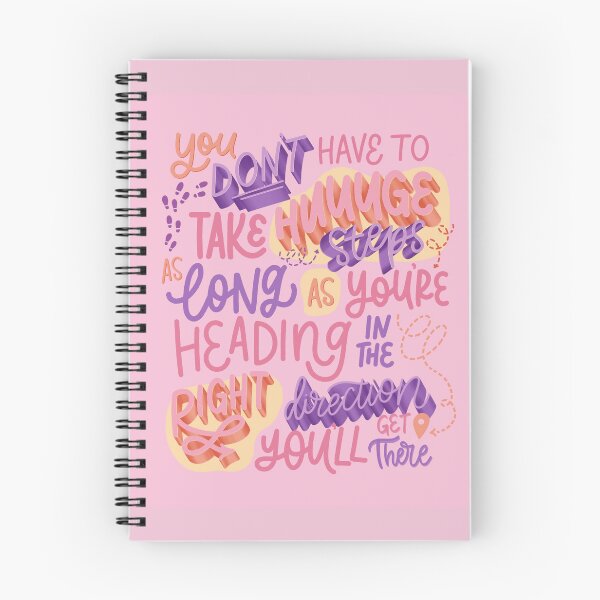 You DON'T HAVE TO
TAKE HUUUGE
steps
AS LONG AS YOU'RE
HEADING IN
THE
RIGHT direction
YOU'LL GET
There